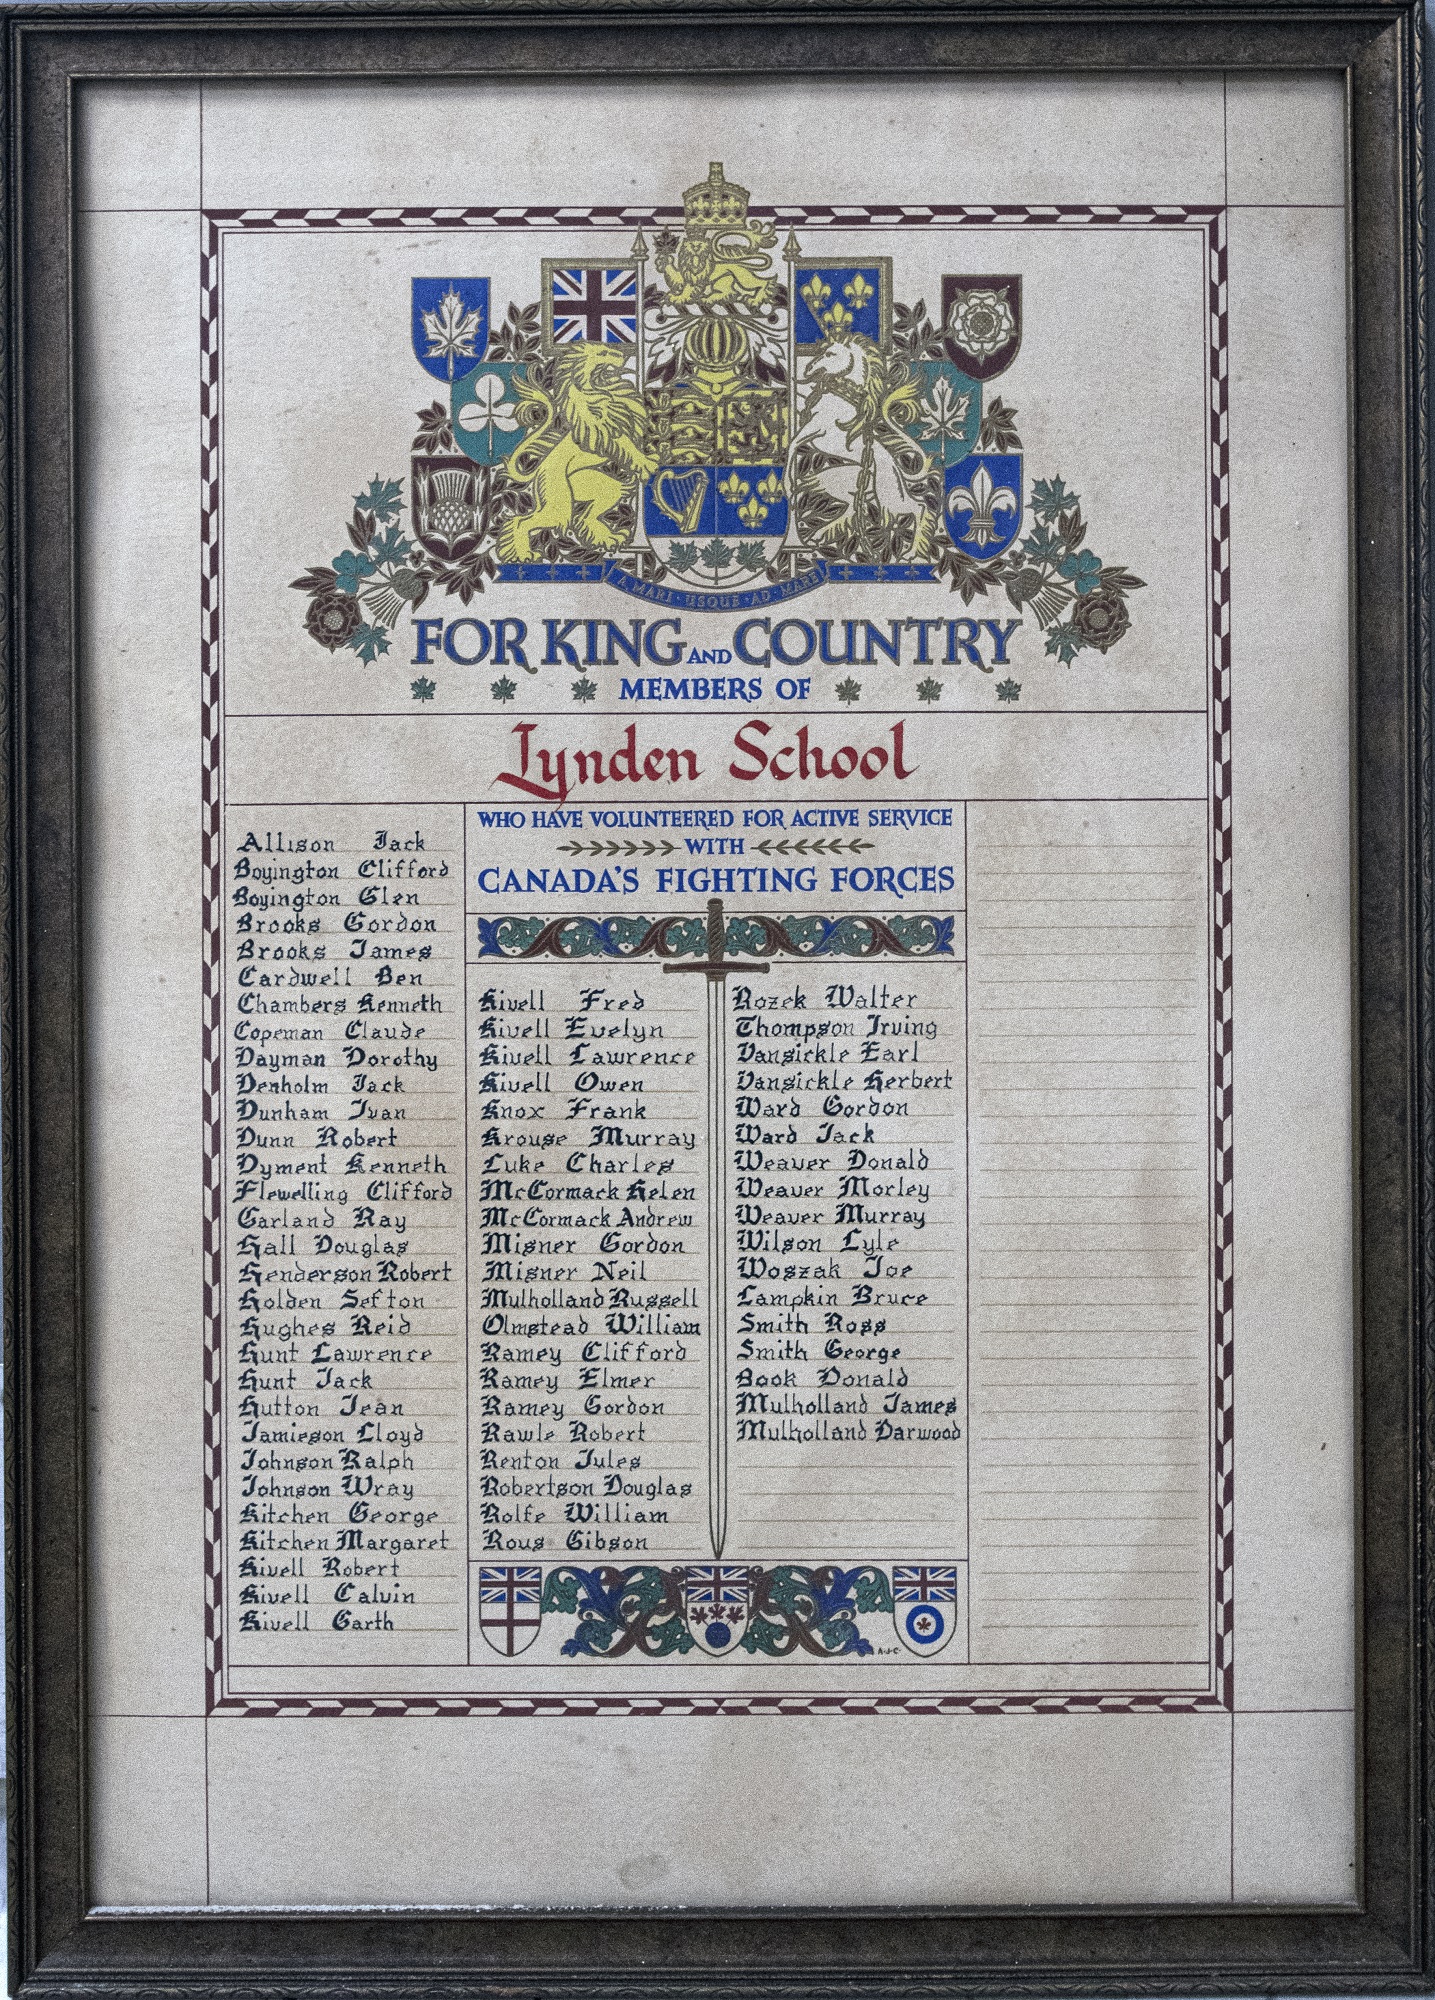 A MARI · USQUE · AD · MARE
FOR KING AND COUNTRY
MEMBERS OF
Lynden School
WHO HAVE VOLUNTEERED FOR ACTIVE SERVICE
WITH
CANADA'S FIGHTING FORCES
Allison Jack
Boyington Clifford
Boyington Glen
Brooks Gordon
Brooks James
Cardwell Ben
Chambers Kenneth
Copeman Claude
Dayman Dorothy
Denholm Jack
Dunham Ivan
Dunn Robert
Dyment Kenneth
Flewelling Clifford
Garland Ray
Hall Douglas
Henderson Robert
Holden Sefton
Hughes Reid
Hunt Lawrence
Hunt Jack
Hutton Jean
Jamieson Lloyd
Johnson Ralph
Johnson Wray
Kitchen George
Kitchen Margaret
Kivell Robert
Kivell Calvin
Kivell Garth
Kivell Fred
Kivell Evelyn
Kivell Lawrence
Kivell Owen
Knox Frank
Krouse Murray
Luke Charles
McCormack Helen
McCormack Andrew
Misner Gordon
Misner Neil
Mulholland Russell
Olmstead William
Ramey Clifford
Ramey Elmer
Ramey Gordon
Rawle Robert
Renton Jules
Robertson Douglas
Rolfe William
Rous Gibson
Rozek Walter
Thompson Irving
Vansickle Earl
Vansickle Herbert
Ward Gordon
Ward Jack
Weaver Donald
Weaver Morley
Weaver Murray
Wilson Lyle
Woszak Joe
Lampkin Bruce
Smith Ross
Smith George
Book Donald
Mulholland James
Mulholland Darwood
A·J·C·